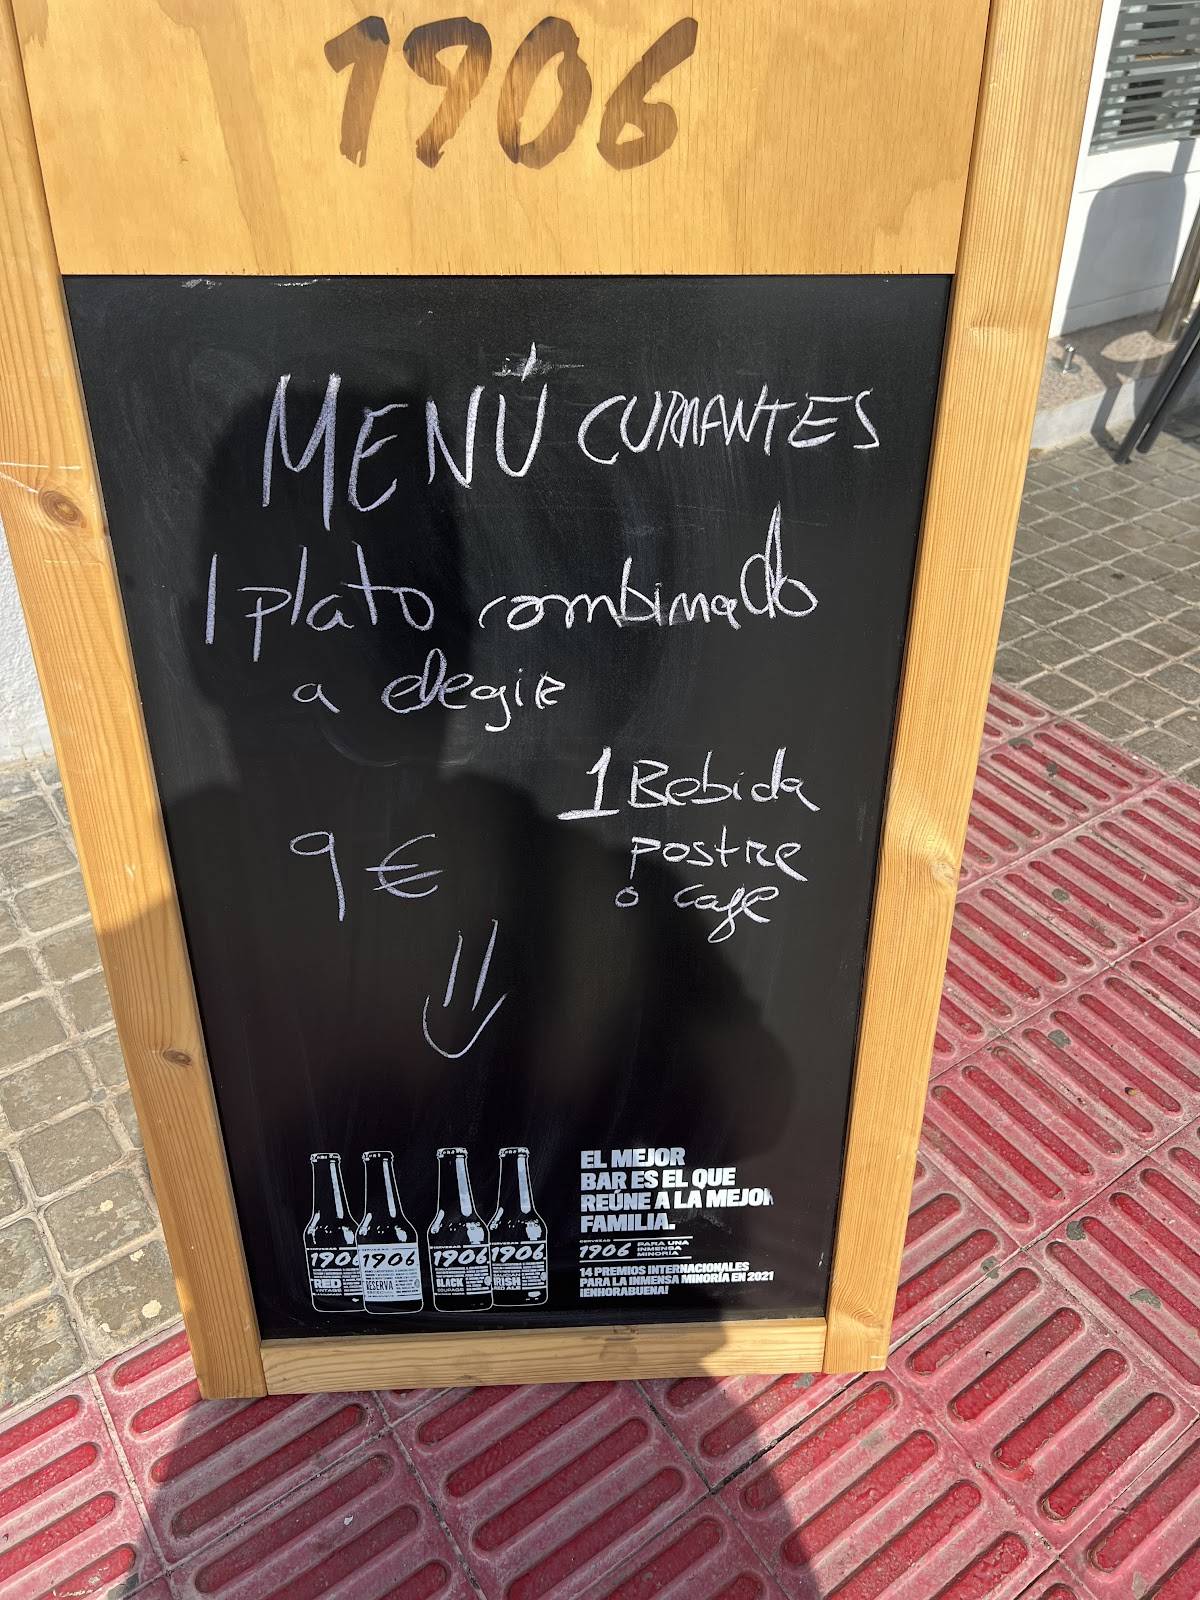 1906
MENÚ CURRANTES
1 plato combinado
a elegir
1 Bebida
postre
o cafe
9 €
EL MEJOR
BAR ES EL QUE
REÚNE A LA MEJOR
FAMILIA.
CERVEZAS
1906
PARA UNA
INMENSA
MINORÍA
14 PREMIOS INTERNACIONALES
PARA LA INMENSA MINORÍA EN 2021
¡ENHORABUENA!
1906
RED
VINTAGE
1906
RESERVA
1906
BLACK
COUPAGE
1906
IRISH
RED ALE